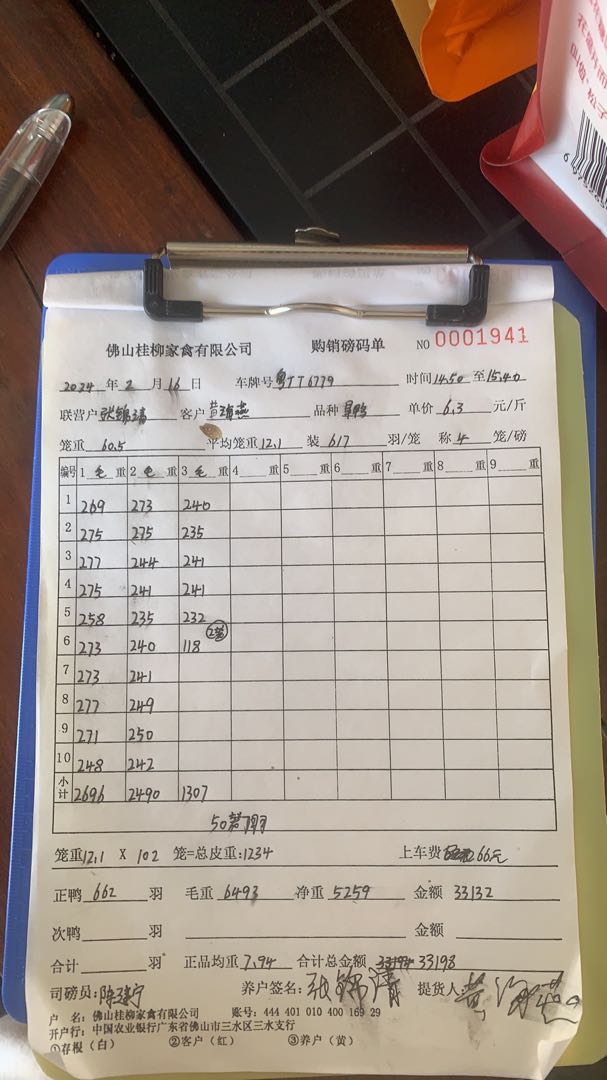 佛山桂柳家禽有限公司 购销磅码单 NO 0001941
2024 年 2 月 16 日 车牌号 粤TT6779 时间 14.50 至 15.40
联营户 张锦清 客户 品种 单价 6.3 元/斤
笼重 60.5 平均笼重 12.1 装 617 羽/笼 称 4 笼/磅
编号 1 毛 重 2 毛 重 3 毛 重 4 重 5 重 6 重 7 重 8 重 9 重
1 269 273 240
2 275 275 235
3 277 244 241
4 275 241 241
5 258 235 232
6 273 240 118 2笼
7 273 241
8 277 249
9 271 250
10 248 242
小计 2696 2490 1307
50笼
笼重 12.1 X 102 笼=总皮重:1234 上车费 66元
正鸭 662 羽 毛重 6493 净重 5259 金额 33132
次鸭 羽 金额
合计 羽 正品均重 7.94 合计总金额 33198
司磅员: 养户签名: 张锦清 提货人:
户 名: 佛山桂柳家禽有限公司 账号: 444 401 010 400 169 29
开户行: 中国农业银行广东省佛山市三水区三水支行
①存根（白） ②客户（红） ③养户（黄）